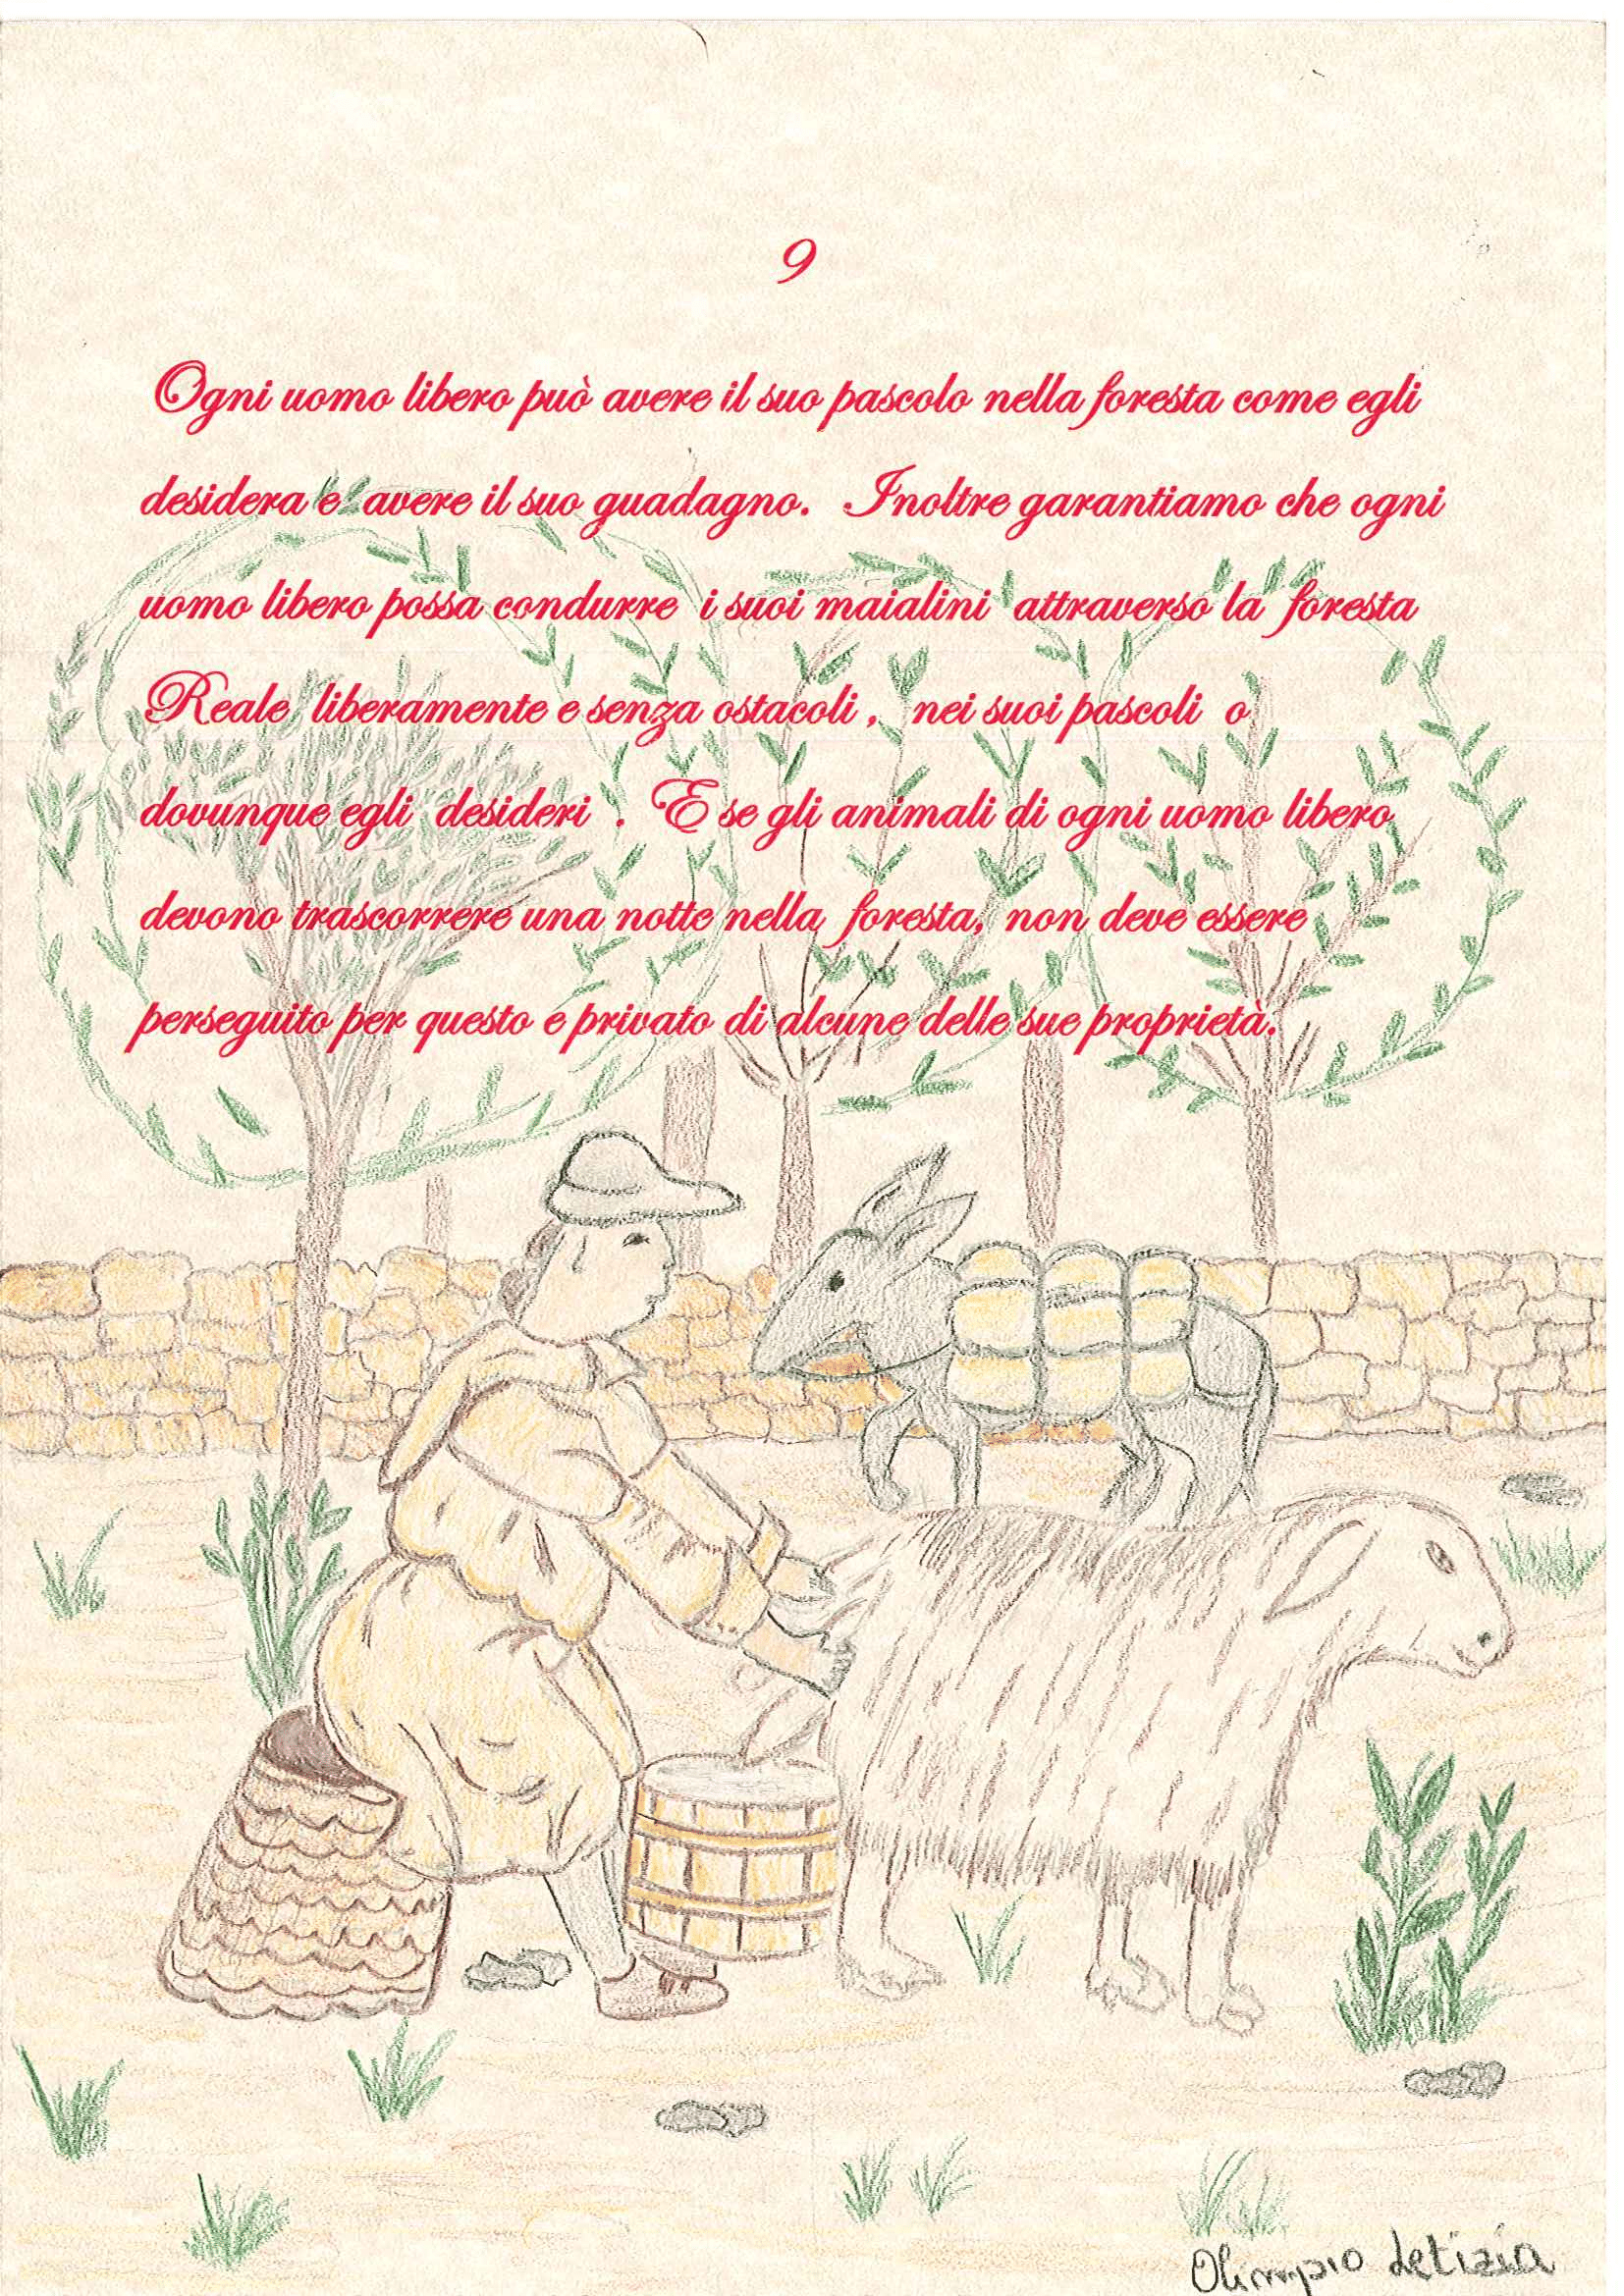 9
Ogni uomo libero può avere il suo pascolo nella foresta come egli
desidera e avere il suo guadagno. Inoltre garantiamo che ogni
uomo libero possa condurre i suoi maialini attraverso la foresta
Reale liberamente e senza ostacoli, nei suoi pascoli o
dovunque egli desideri. E se gli animali di ogni uomo libero
devono trascorrere una notte nella foresta, non deve essere
perseguito per questo e privato di alcune delle sue proprietà.
Olimpio Letizia